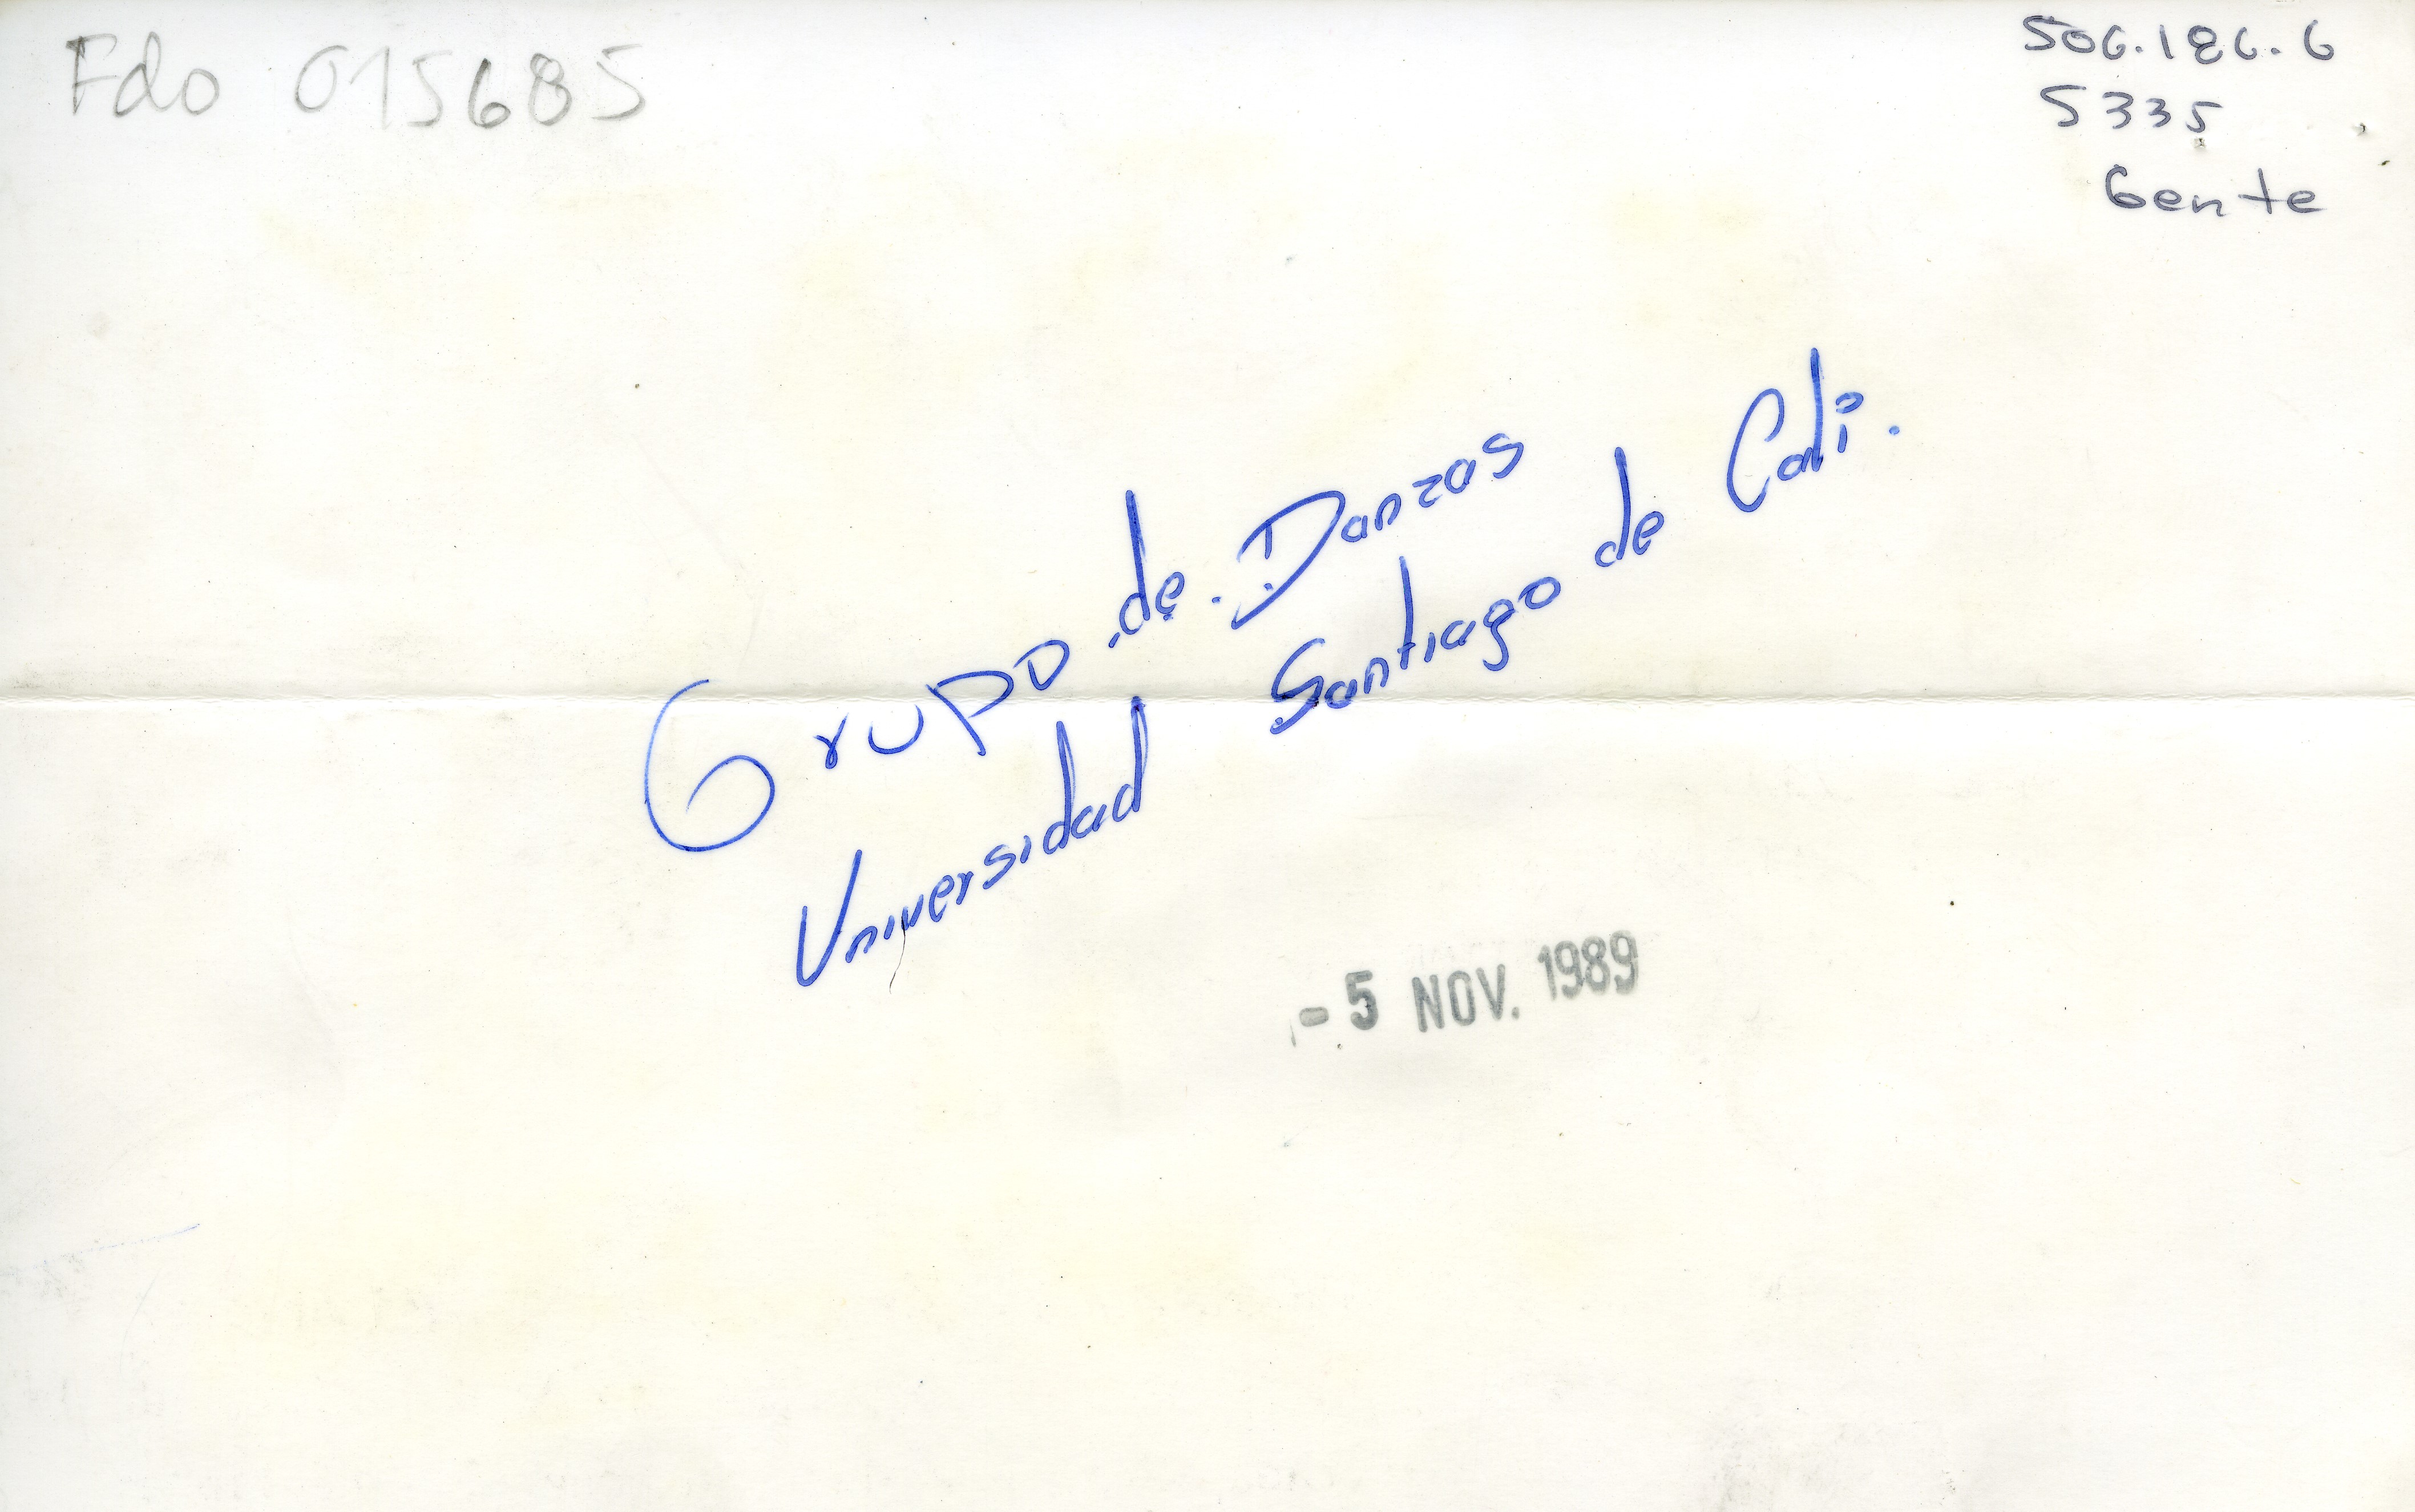 Fdo 015685
506.186.6
5335
Gente
Grupo de Danzas
Universidad Santiago de Cali.
- 5 NOV. 1989